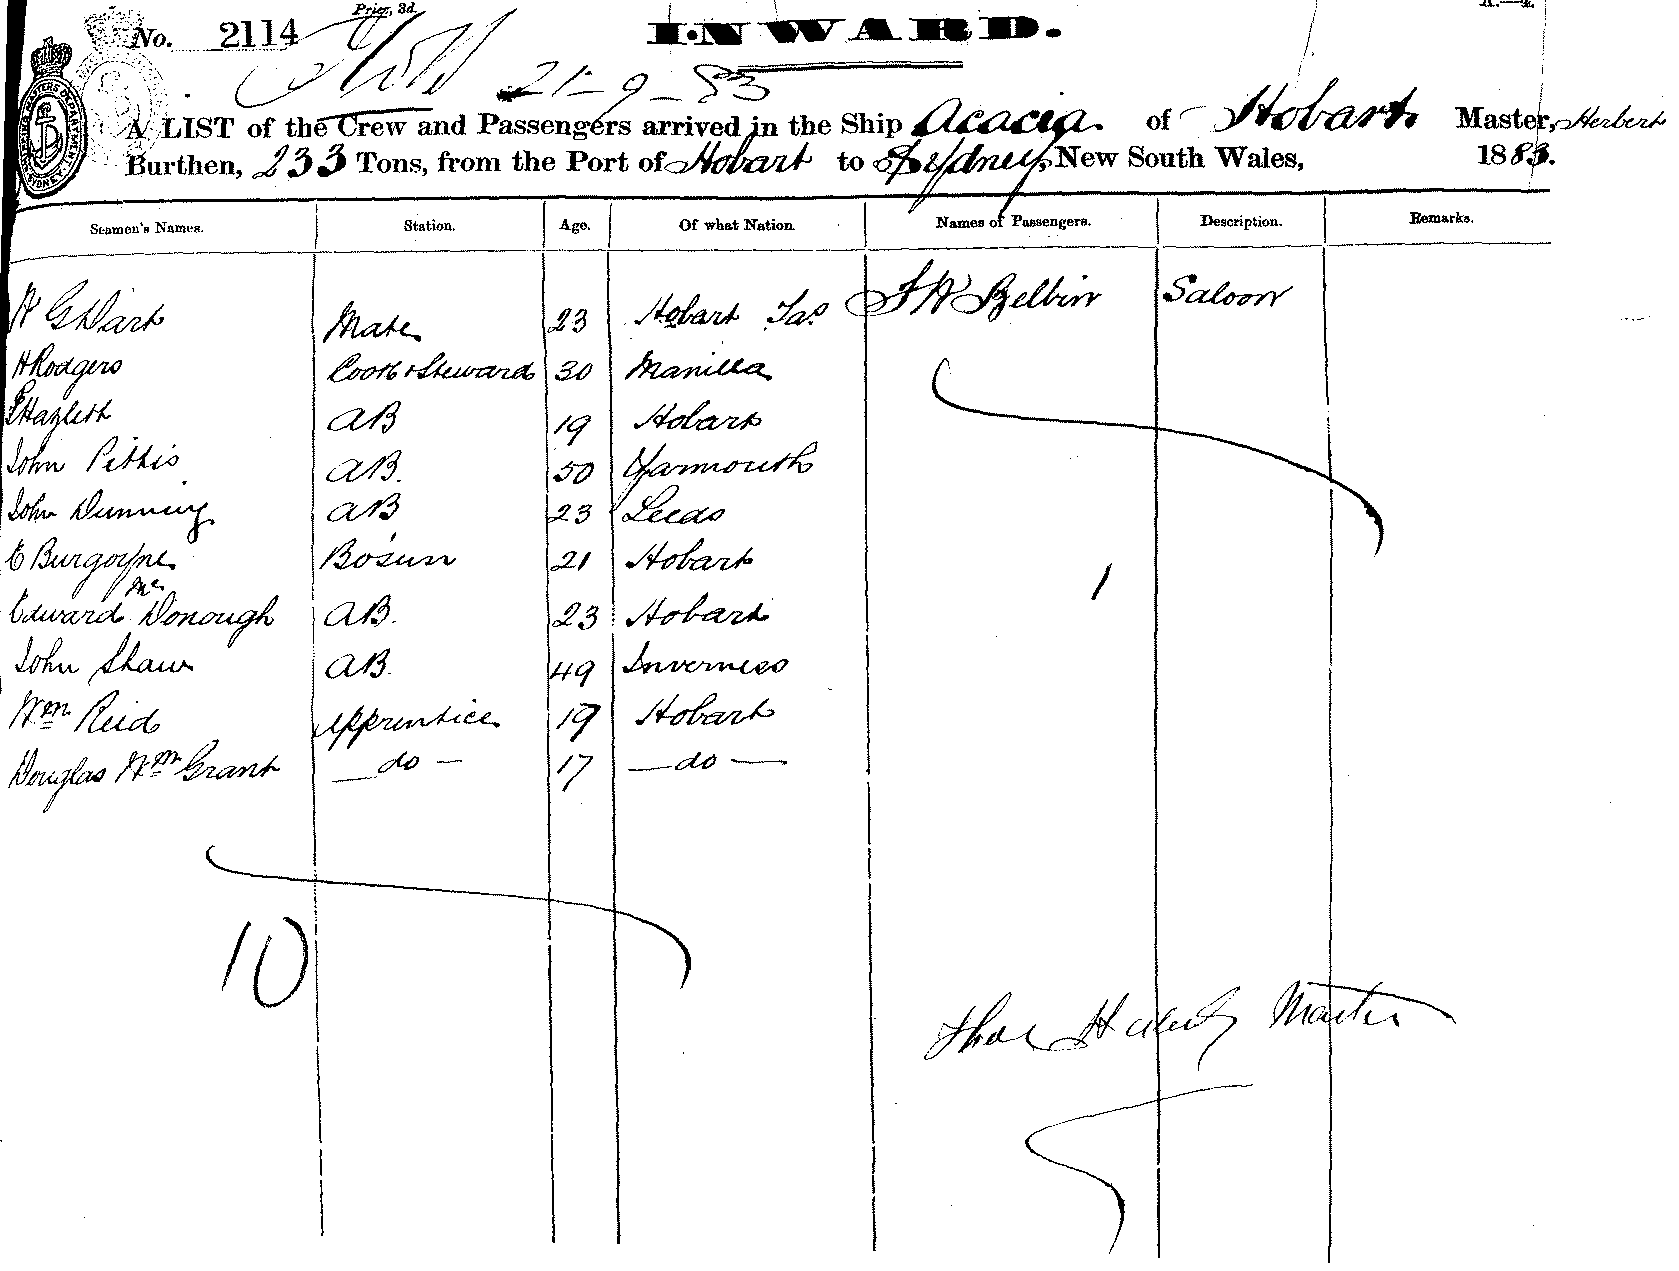 Price, 3d.
No. 2114
INWARD.
21-9-83
A LIST of the Crew and Passengers arrived in the Ship Acacia. of Hobart. Master, Herbert
Burthen, 233 Tons, from the Port of Hobart to Sydney, New South Wales, 1883.
Seamen's Names. Station. Age. Of what Nation. Names of Passengers. Description. Remarks.
W G Dart Mate 23 Hobart Tas. F W Belbin Saloon
H Rodgers Cook & Steward 30 Manilla
Hazlett AB 19 Hobart
John Pittis AB. 50 Yarmouth
John Dunning AB 23 Leeds
C Burgoyne Bosun 21 Hobart
1
Edward McDonough AB. 23 Hobart
John Shaw AB. 49 Inverness
Wm Reid Apprentice 19 Hobart
Douglas Wm Grant — do — 17 — do —
10
Thos Herbert Master